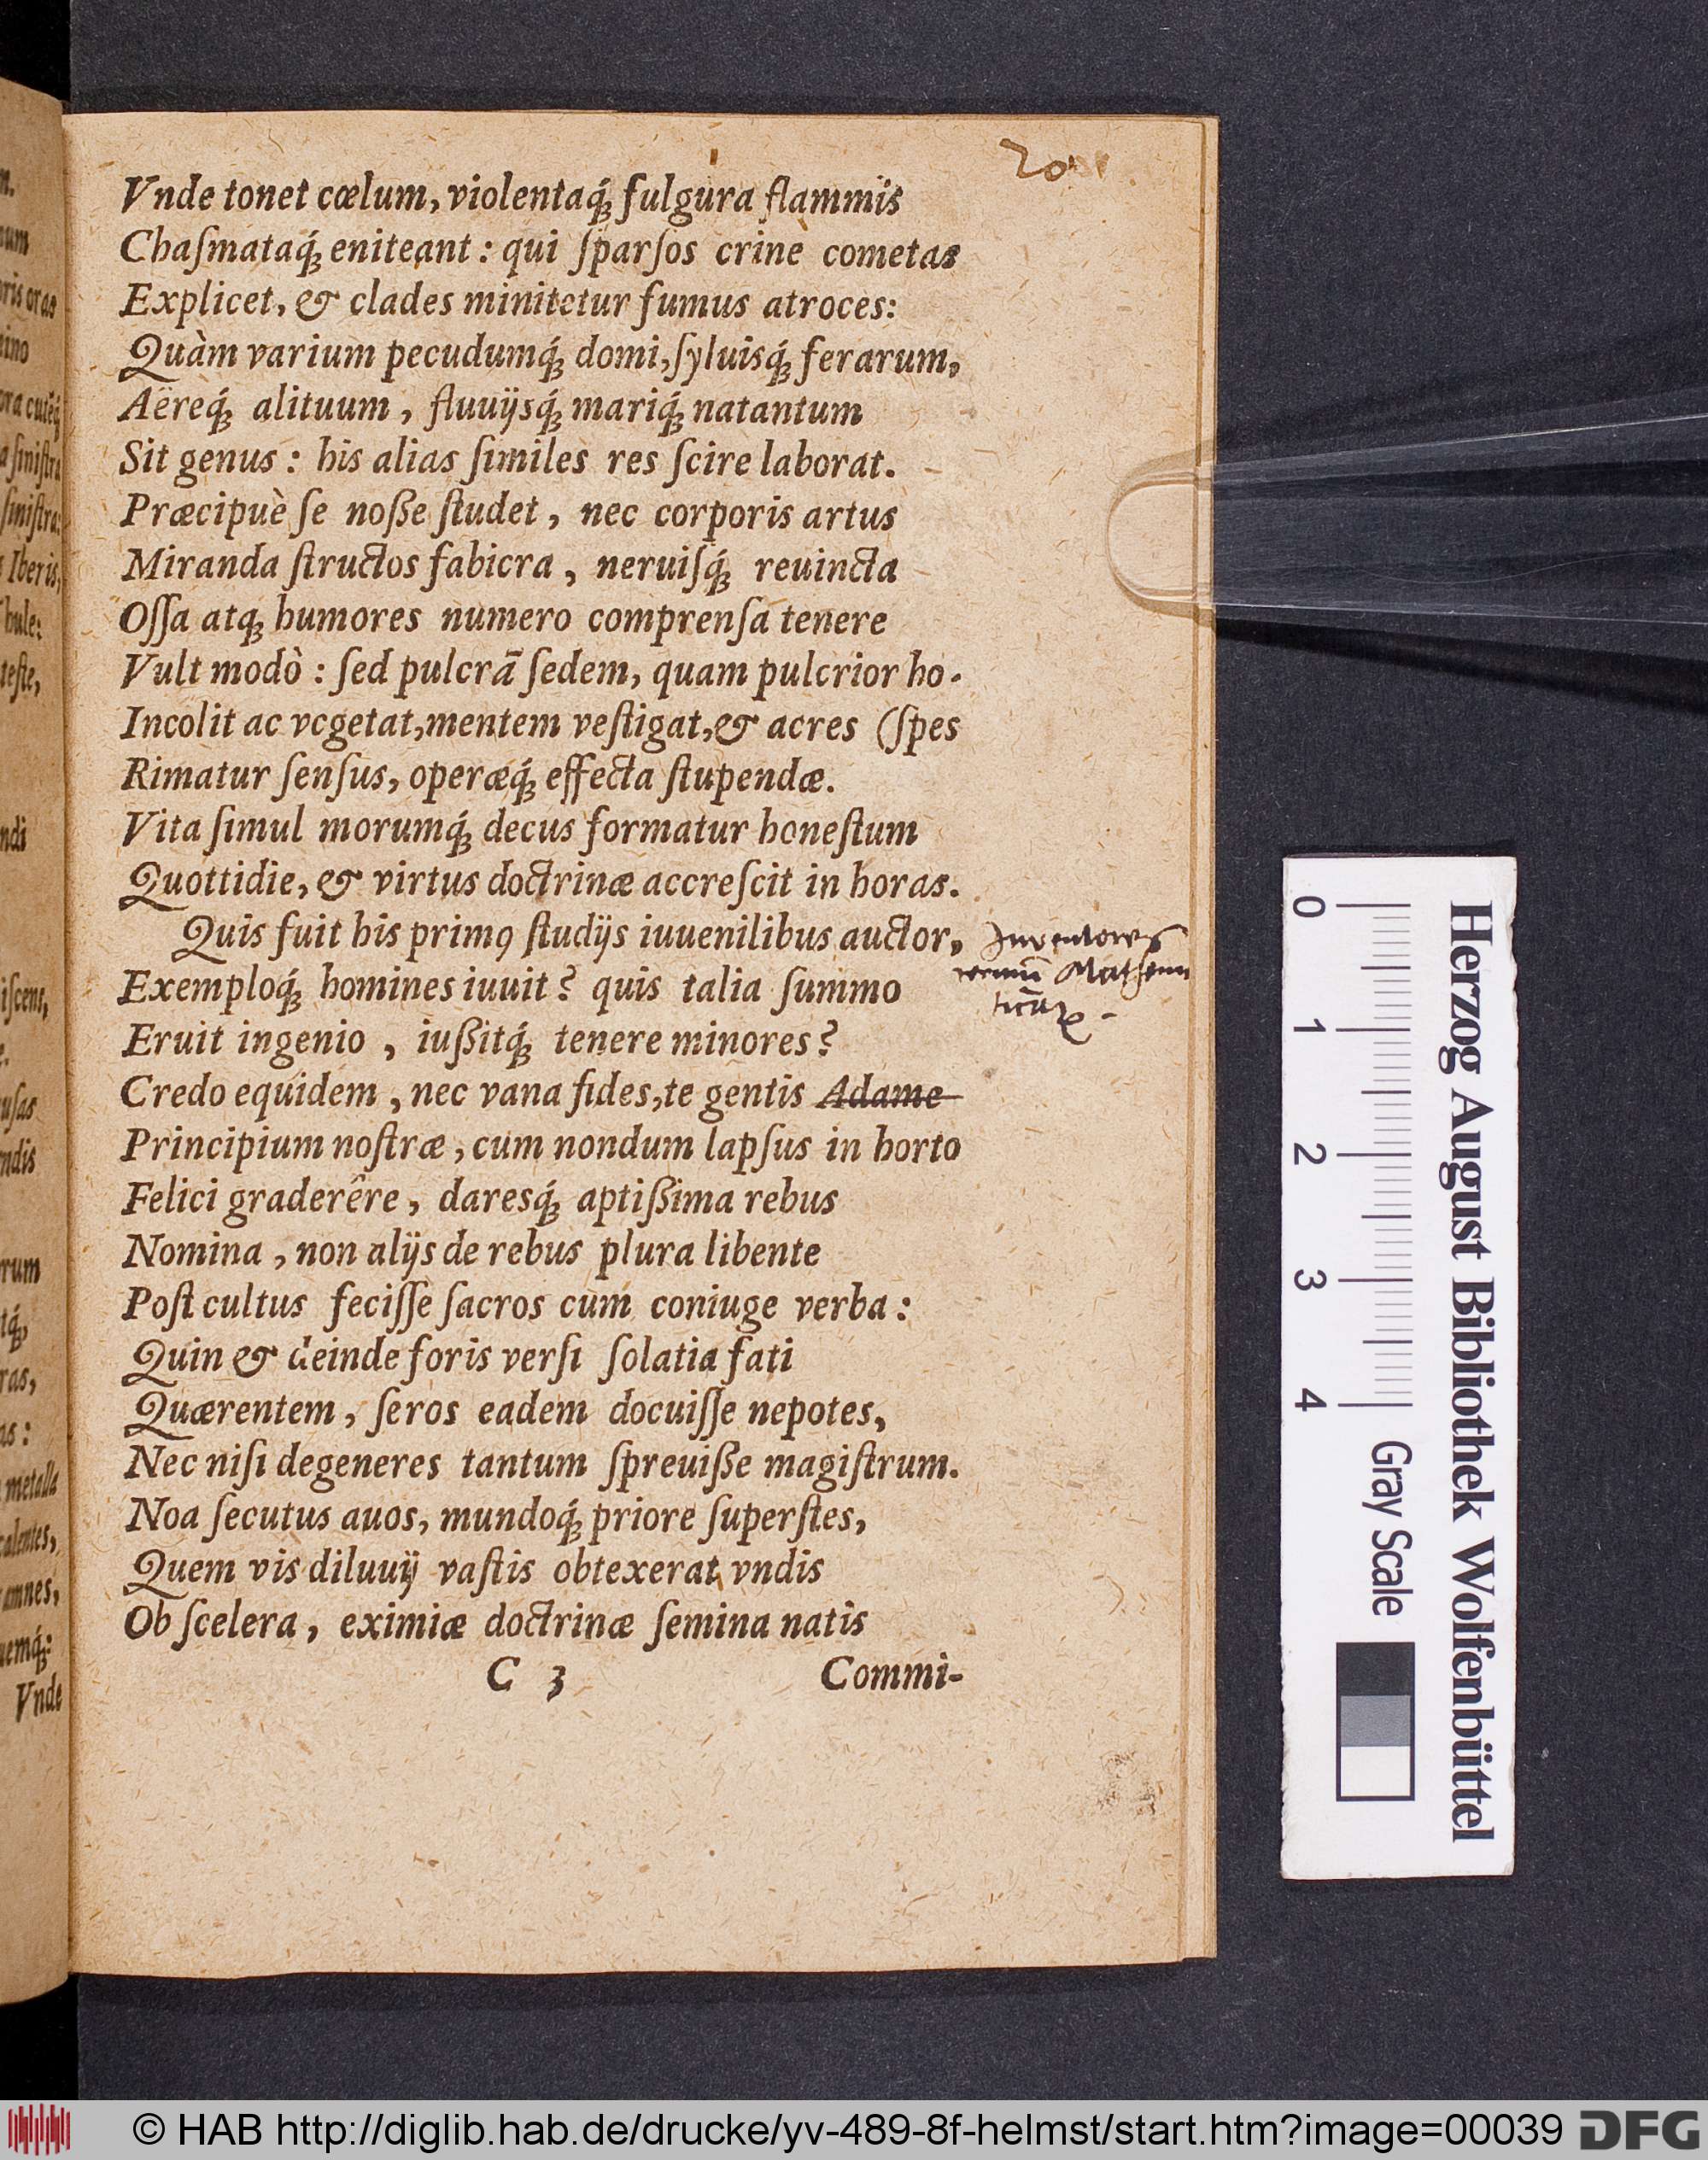 20
Vnde tonet cœlum, violentaq́; fulgura flammis
Chaſmataq́; eniteant : qui ſparſos crine cometas
Explicet, & clades minitetur fumus atroces:
Quàm varium pecudumq́; domi, ſyluisq́; ferarum,
Aëreq́; alituum , fluuijsq́; mariq́; natantum
Sit genus : his alias ſimiles res ſcire laborat.
Præcipuè ſe noße ſtudet , nec corporis artus
Miranda ſtructos fabicra , neruiſq́; reuincta
Oſſa atq; humores numero comprenſa tenere
Vult modò : ſed pulcrā ſedem, quam pulcrior ho-
Incolit ac vcgetat,mentem veſtigat,& acres (ſpes
Rimatur ſenſus, operæq́; effecta ſtupendæ.
Vita ſimul morumq́; decus formatur honeſtum
Quottidie, & virtus doctrinæ accreſcit in horas.
Quis fuit his primꝰ ſtudijs iuuenilibus auctor,
Exemploq́; homines iuuit ? quis talia ſummo
Eruit ingenio , iußitq́; tenere minores ?
Credo equidem , nec vana fides,te gentis Adame
Principium noſtræ , cum nondum lapſus in horto
Felici graderêre , daresq́; aptißima rebus
Nomina , non alijs de rebus plura libente
Poſt cultus feciſſe ſacros cum coniuge verba :
Quin & deinde foris verſi ſolatia fati
Quærentem , ſeros eadem docuiſſe nepotes,
Nec niſi degeneres tantum ſpreuiße magiſtrum.
Noa ſecutus auos, mundoq́; priore ſuperſtes,
Quem vis diluuij vaſtis obtexerat vndis
Ob ſcelera , eximiæ doctrinæ ſemina natis
C 3 Commi-
Inventores
rerum̄ Mathema
ticāꝝ
Herzog August Bibliothek Wolfenbüttel
0 1 2 3 4 Gray Scale
© HAB http://diglib.hab.de/drucke/yv-489-8f-helmst/start.htm?image=00039 DFG